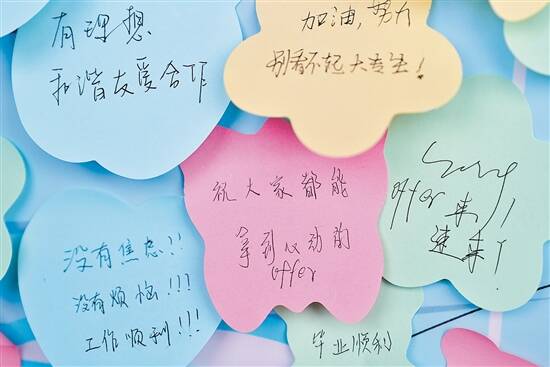 有理想
和谐友爱合作
加油,努力
别看不起大专生!
祝大家都能
拿到心动的
offer
offer 来!
速来!
没有焦虑!!
没有烦恼!!!
工作顺利!!!
毕业顺利